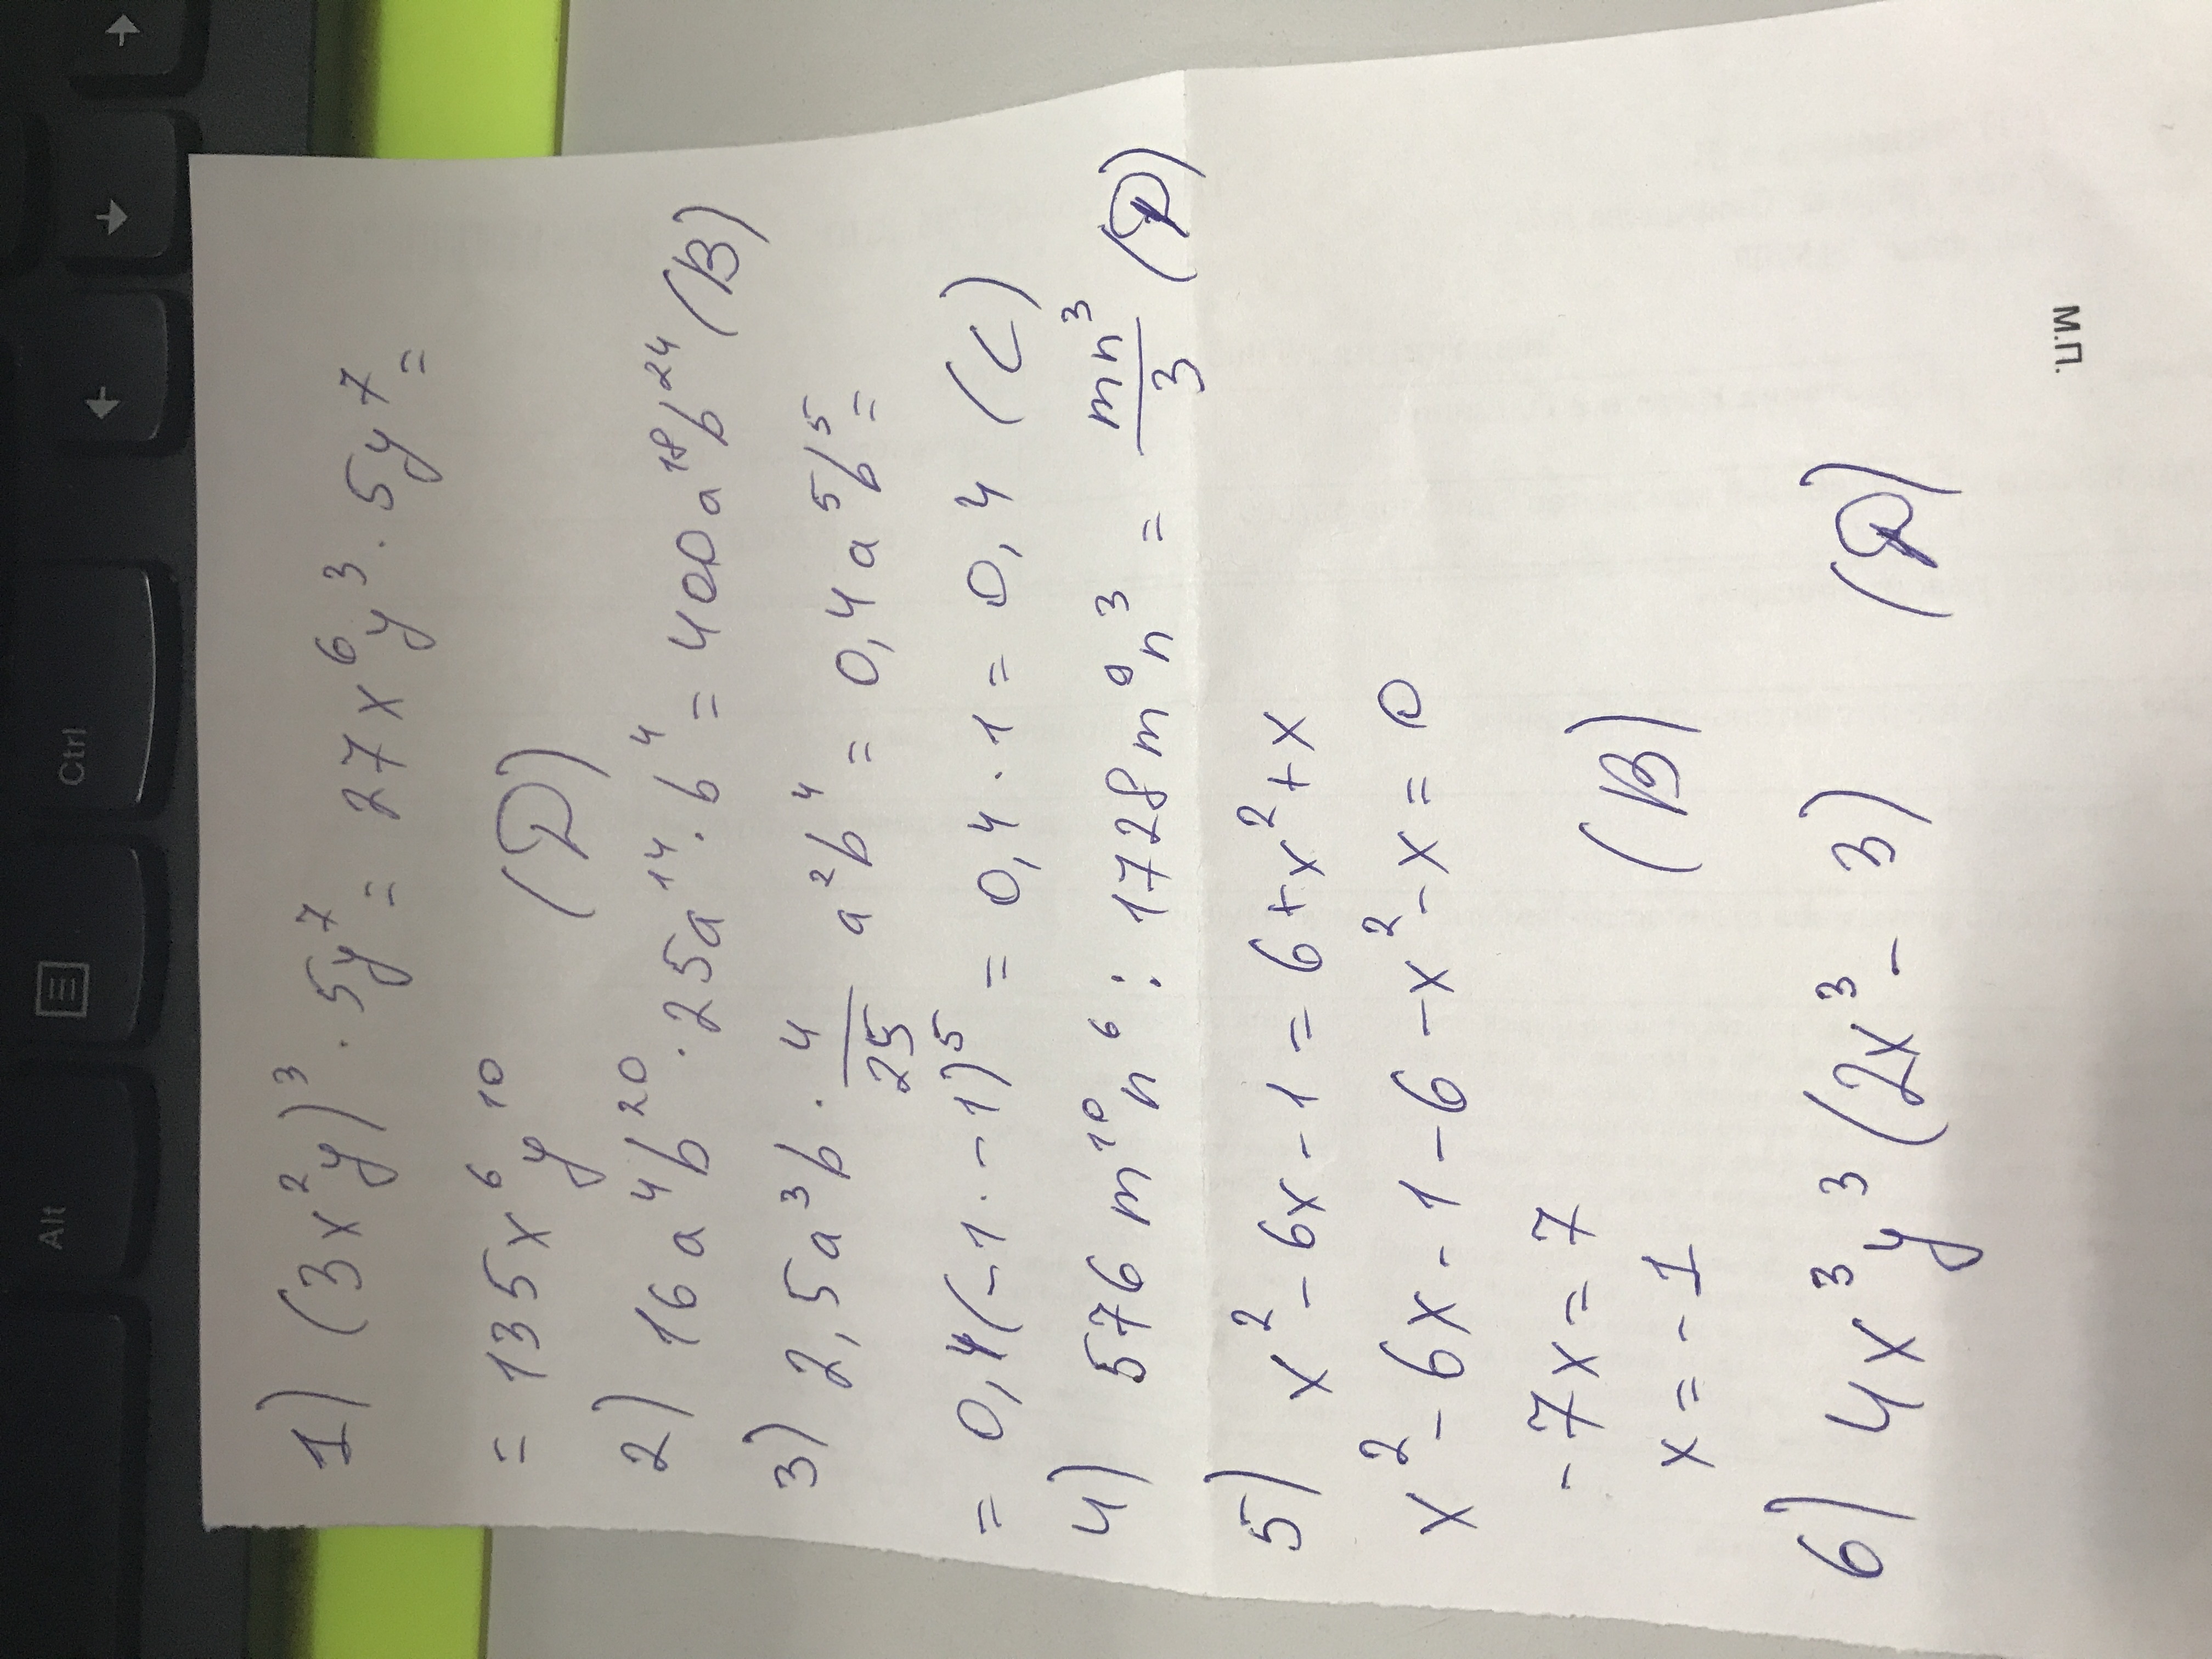 1) (3x²y)³ · 5y⁷ = 27x⁶y³ · 5y⁷ =
= 135x⁶y¹⁰ (D)
2) 16a⁴b²⁰ · 25a¹⁴ · b⁴ = 400a¹⁸b²⁴ (B)
3) 2,5a³b · 4/25 a²b⁴ = 0,4a⁵b⁵ =
= 0,4(-1 · -1)⁵ = 0,4 · 1 = 0,4 (C)
4) 576 m¹⁰n⁶ : 1728m⁹n³ = mn³/3 (D)
5) x² - 6x - 1 = 6 + x² + x
x² - 6x - 1 - 6 - x² - x = 0
-7x = 7
x = -1 (B)
6) 4x³y³(2x³ - 3) (D)
м.п.
Alt
Ctrl